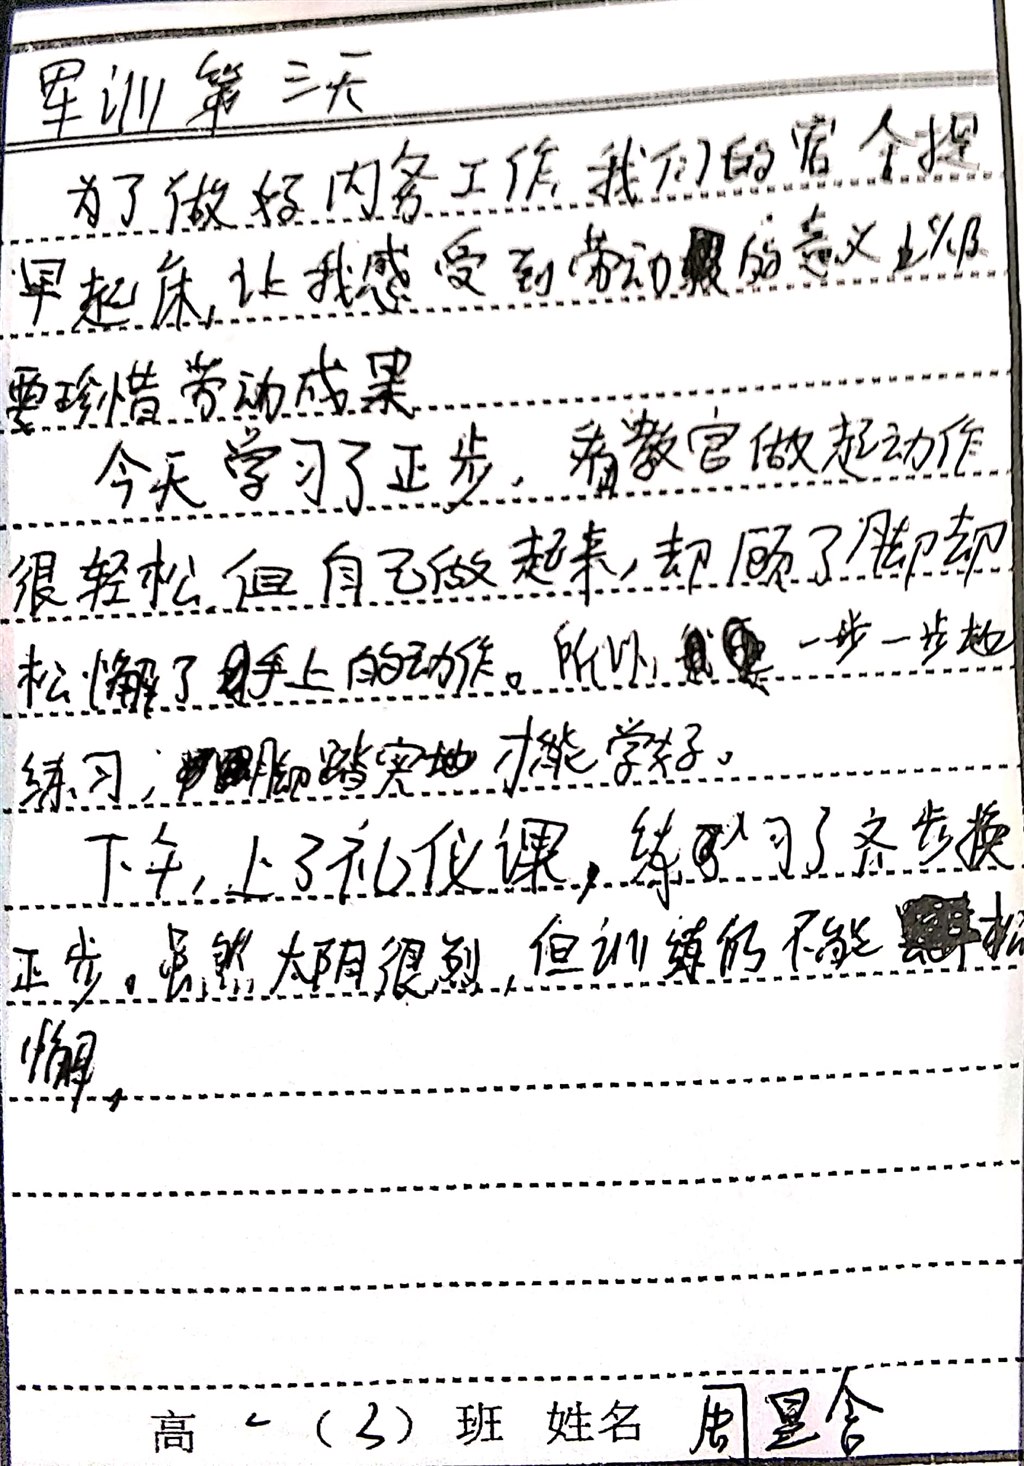 军训第三天
为了做好内务工作,我们的宿舍提
早起床,让我感受到劳动的意义以及
要珍惜劳动成果
今天学习了正步。看教官做起动作
很轻松,但自己做起来,却顾了脚却
松懈了手上的动作。所以,一步一步地
练习,脚踏实地才能学好。
下午,上了礼仪课,练习了齐步换
正步。虽然太阳很烈,但训练仍不能松
懈。
高一(3)班 姓名 周星含